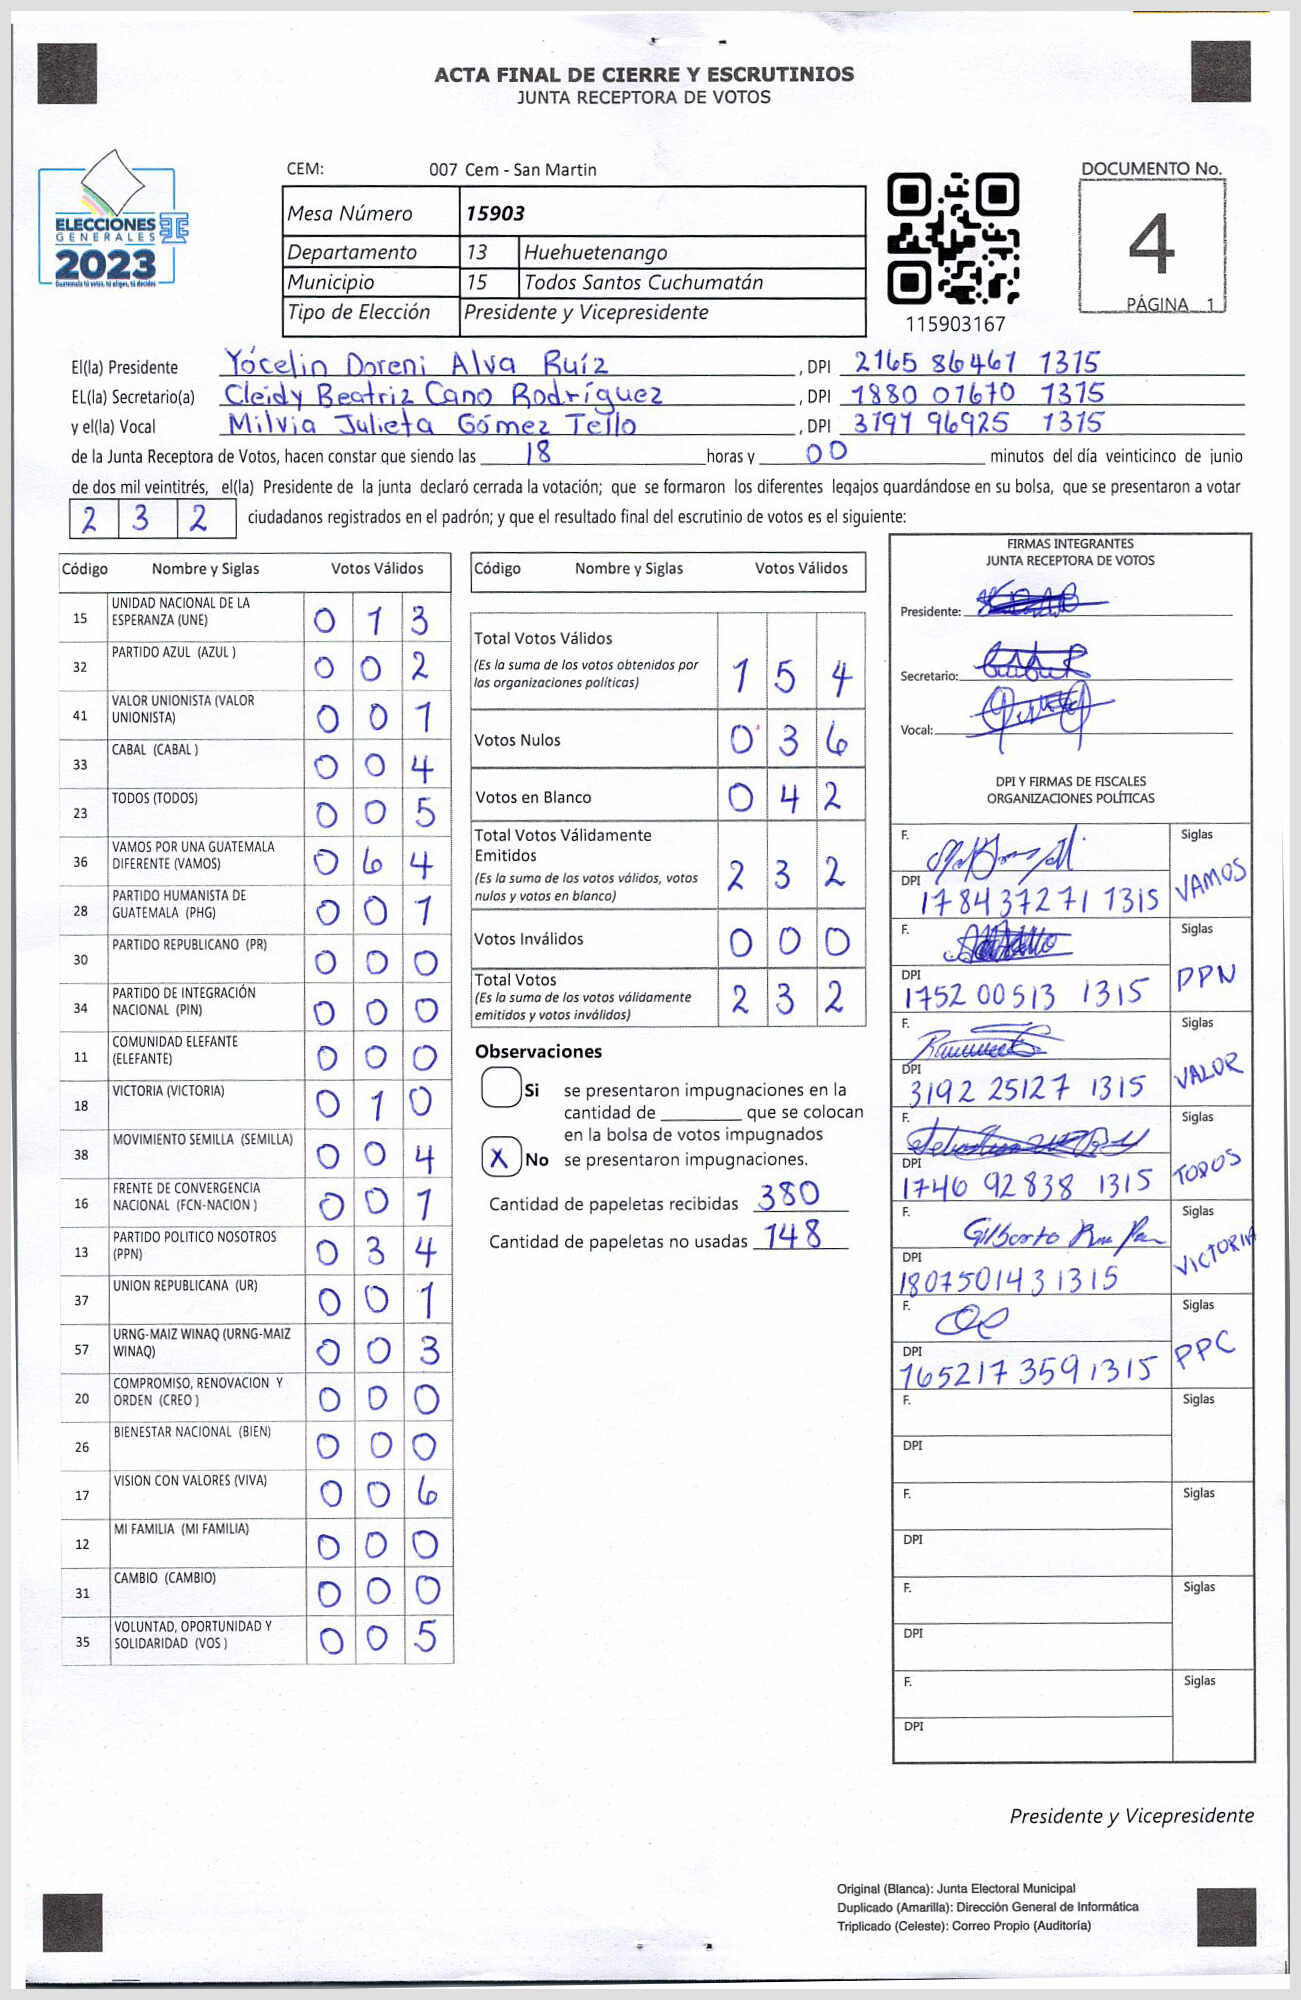 ACTA FINAL DE CIERRE Y ESCRUTINIOS
JUNTA RECEPTORA DE VOTOS
ELECCIONES
GENERALES
2023
Guatemala tú votas, tú eliges, tú decides
CEM: 007 Cem - San Martin
Mesa Número 15903
Departamento 13 Huehuetenango
Municipio 15 Todos Santos Cuchumatán
Tipo de Elección Presidente y Vicepresidente
115903167
DOCUMENTO No.
4
PÁGINA 1
El(la) Presidente Yócelin Doreni Alva Ruíz , DPI 2165 86461 1315
EL(la) Secretario(a) Cleidy Beatriz Cano Rodríguez , DPI 1880 01670 1315
y el(la) Vocal Milvia Julieta Gómez Tello , DPI 3191 96925 1315
de la Junta Receptora de Votos, hacen constar que siendo las 18 horas y 00 minutos del día veinticinco de junio
de dos mil veintitrés, el(la) Presidente de la junta declaró cerrada la votación; que se formaron los diferentes legajos guardándose en su bolsa, que se presentaron a votar
2 3 2 ciudadanos registrados en el padrón; y que el resultado final del escrutinio de votos es el siguiente:
Código Nombre y Siglas Votos Válidos
15 UNIDAD NACIONAL DE LA ESPERANZA (UNE) 0 1 3
32 PARTIDO AZUL (AZUL ) 0 0 2
41 VALOR UNIONISTA (VALOR UNIONISTA) 0 0 1
33 CABAL (CABAL ) 0 0 4
23 TODOS (TODOS) 0 0 5
36 VAMOS POR UNA GUATEMALA DIFERENTE (VAMOS) 0 6 4
28 PARTIDO HUMANISTA DE GUATEMALA (PHG) 0 0 1
30 PARTIDO REPUBLICANO (PR) 0 0 0
34 PARTIDO DE INTEGRACIÓN NACIONAL (PIN) 0 0 0
11 COMUNIDAD ELEFANTE (ELEFANTE) 0 0 0
18 VICTORIA (VICTORIA) 0 1 0
38 MOVIMIENTO SEMILLA (SEMILLA) 0 0 4
16 FRENTE DE CONVERGENCIA NACIONAL (FCN-NACION ) 0 0 1
13 PARTIDO POLITICO NOSOTROS (PPN) 0 3 4
37 UNION REPUBLICANA (UR) 0 0 1
57 URNG-MAIZ WINAQ (URNG-MAIZ WINAQ) 0 0 3
20 COMPROMISO, RENOVACION Y ORDEN (CREO ) 0 0 0
26 BIENESTAR NACIONAL (BIEN) 0 0 0
17 VISION CON VALORES (VIVA) 0 0 6
12 MI FAMILIA (MI FAMILIA) 0 0 0
31 CAMBIO (CAMBIO) 0 0 0
35 VOLUNTAD, OPORTUNIDAD Y SOLIDARIDAD (VOS ) 0 0 5
Código Nombre y Siglas Votos Válidos
Total Votos Válidos
(Es la suma de los votos obtenidos por
las organizaciones políticas) 1 5 4
Votos Nulos 0 3 6
Votos en Blanco 0 4 2
Total Votos Válidamente
Emitidos
(Es la suma de los votos válidos, votos
nulos y votos en blanco) 2 3 2
Votos Inválidos 0 0 0
Total Votos
(Es la suma de los votos válidamente
emitidos y votos inválidos) 2 3 2
Observaciones
Si se presentaron impugnaciones en la
cantidad de ________ que se colocan
en la bolsa de votos impugnados
X No se presentaron impugnaciones.
Cantidad de papeletas recibidas 380
Cantidad de papeletas no usadas 148
FIRMAS INTEGRANTES
JUNTA RECEPTORA DE VOTOS
Presidente:
Secretario:
Vocal:
DPI Y FIRMAS DE FISCALES
ORGANIZACIONES POLÍTICAS
F. Siglas
DPI 1784 37271 1315 VAMOS
F. Siglas
DPI 1752 00513 1315 PPN
F. Siglas
DPI 3192 25127 1315 VALOR
F. Siglas
DPI 1746 92838 1315 TODOS
F. Gilberto Siglas
DPI 1807501431315 VICTORIA
F. Siglas
DPI 165217 359 1315 PPC
F. Siglas
DPI
F. Siglas
DPI
F. Siglas
DPI
F. Siglas
DPI
Presidente y Vicepresidente
Original (Blanca): Junta Electoral Municipal
Duplicado (Amarilla): Dirección General de Informática
Triplicado (Celeste): Correo Propio (Auditoría)